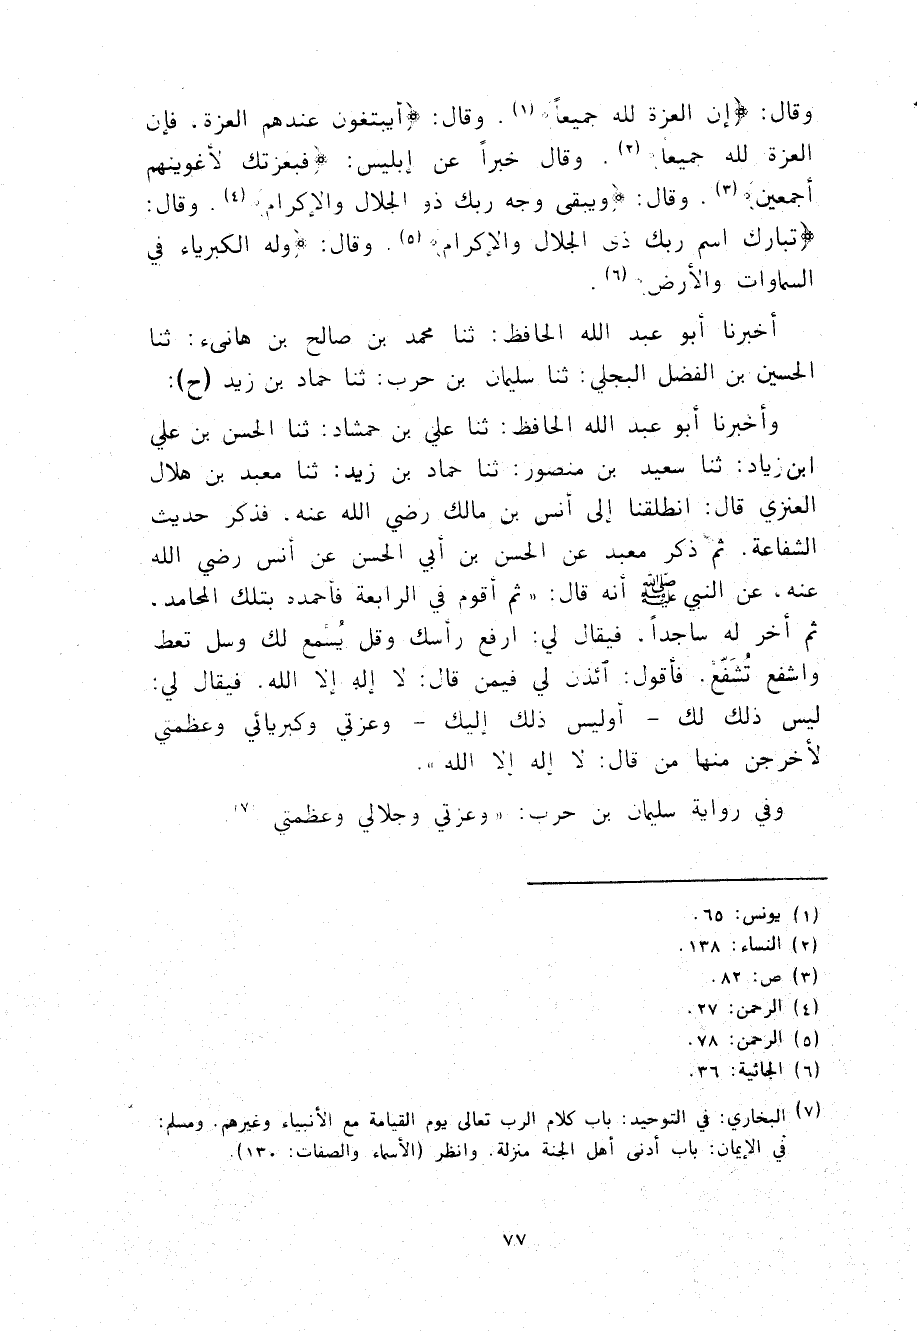 وقال: ﴿إن العزة لله جميعاً﴾ (١). وقال: ﴿أيبتغون عندهم العزة. فإن
العزة لله جميعا﴾ (٢). وقال خبراً عن إبليس: ﴿فبعزتك لأغوينهم
أجمعين﴾ (٣). وقال: ﴿ويبقى وجه ربك ذو الجلال والإكرام﴾ (٤). وقال:
﴿تبارك اسم ربك ذى الجلال والإكرام﴾ (٥). وقال: ﴿وله الكبرياء في
السماوات والأرض﴾ (٦).
أخبرنا أبو عبد الله الحافظ: ثنا محمد بن صالح بن هانىء: ثنا
الحسين بن الفضل البجلي: ثنا سليمان بن حرب: ثنا حماد بن زيد (ح):
وأخبرنا أبو عبد الله الحافظ: ثنا علي بن حمشاد: ثنا الحسن بن علي
ابن زياد: ثنا سعيد بن منصور: ثنا حماد بن زيد: ثنا معبد بن هلال
العنزي قال: انطلقنا إلى أنس بن مالك رضي الله عنه. فذكر حديث
الشفاعة. ثم ذكر معبد عن الحسن بن أبي الحسن عن أنس رضي الله
عنه. عن النبي ﷺ أنه قال: «ثم أقوم في الرابعة فأحمده بتلك المحامد.
ثم أخر له ساجداً. فيقال لي: ارفع رأسك وقل يُسْمع لك وسل تعط
واشفع تُشَفَّعْ. فأقول: ٱئذن لي فيمن قال: لا إله إلا الله. فيقال لي:
ليس ذلك لك – أوليس ذلك إليك – وعزتي وكبريائي وعظمتي
لأخرجن منها من قال: لا إله إلا الله».
وفي رواية سليمان بن حرب: «وعزتي وجلالي وعظمتي (٧)
(١) يونس: ٦٥.
(٢) النساء: ١٣٨.
(٣) ص: ٨٢.
(٤) الرحمن: ٢٧.
(٥) الرحمن: ٧٨.
(٦) الجاثية: ٣٦.
(٧) البخاري: في التوحيد: باب كلام الرب تعالى يوم القيامة مع الأنبياء وغيرهم. ومسلم:
في الإيمان: باب أدنى أهل الجنة منزلة. وانظر (الأسماء والصفات: ١٣٠).
٧٧